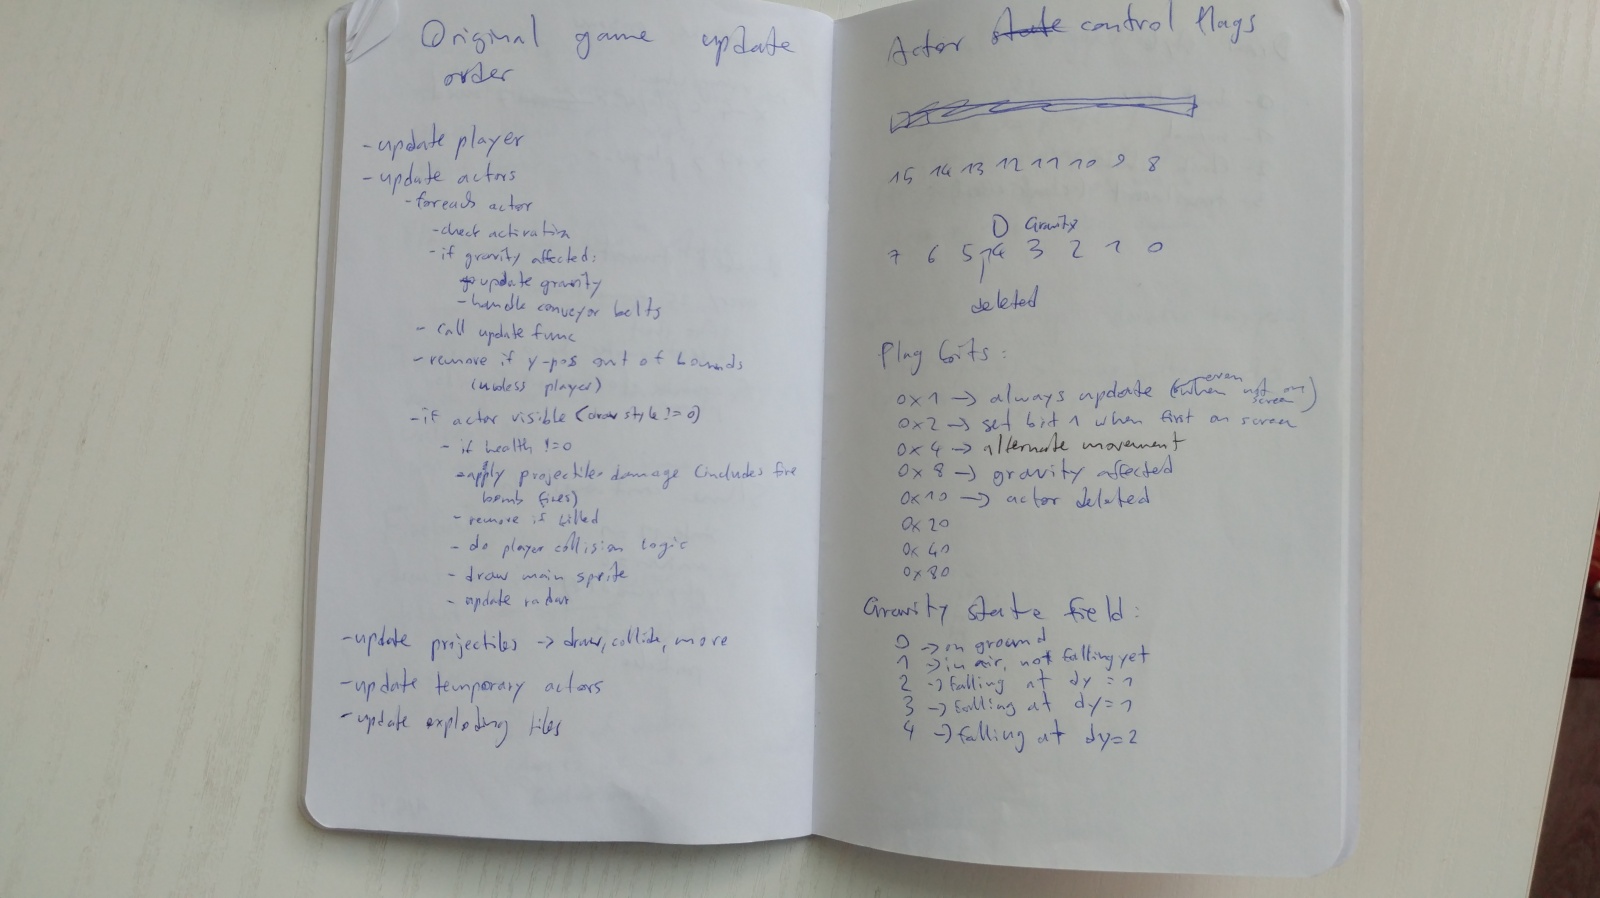 Original game update
order
- update player
- update actors
- foreach actor
- check activation
- if gravity affected:
- update gravity
- handle conveyor belts
- call update func
- remove if y-pos out of bounds
(unless player)
- if actor visible (draw style != 0)
- if health != 0
- apply projectile damage (includes fire
bomb fires)
- remove if killed
- do player collision logic
- draw main sprite
- update radar
- update projectiles -> draw, collide, move
- update temporary actors
- update exploding tiles
Actor state control flags
15 14 13 12 11 10 9 8
D Gravity
7 6 5 4 3 2 1 0
deleted
Flag bits:
0x1 -> always update (even when not on screen)
0x2 -> set bit 1 when first on screen
0x4 -> alternate movement
0x8 -> gravity affected
0x10 -> actor deleted
0x20
0x40
0x80
Gravity state field:
0 -> on ground
1 -> in air, not falling yet
2 -> falling at dy = 1
3 -> falling at dy = 1
4 -> falling at dy = 2